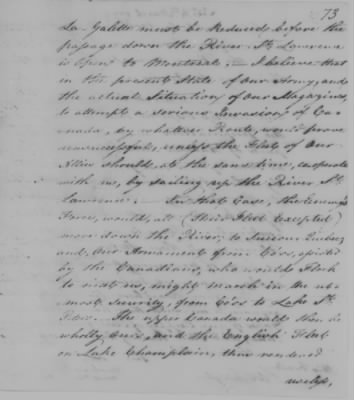 73
La Galette must be Reduced before the
passage down the River St. Lawrence
is open to Montreal; — I believe that
in the present State of our Army, and
the actual Situation of our Magazines,
to attempt a serious Invasion of Ca-
nada, by whatever Route, would prove
unsuccessful, unless the Fleet of our
Allies should, at the same time, cooperate
with us, by sailing up the River St.
Lawrence. — In that Case, the enemy's
Force, would, all (Their Fleet excepted)
move down the River, to Succour Quebec
and, Our Armament from Co'os, assisted
by the Canadians, who would Flock
to assist us, might march in the ut-
most Security, from Co'os to Lake St.
The upper Canada would then be
wholly Ours, and the English Fleet
on Lake Champlain, thus rendered
useless,